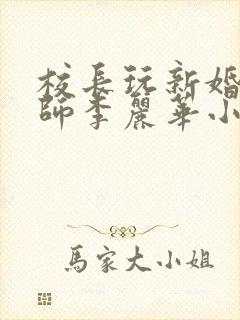 校長玩新婚
師李麗華小
馬家大小姐